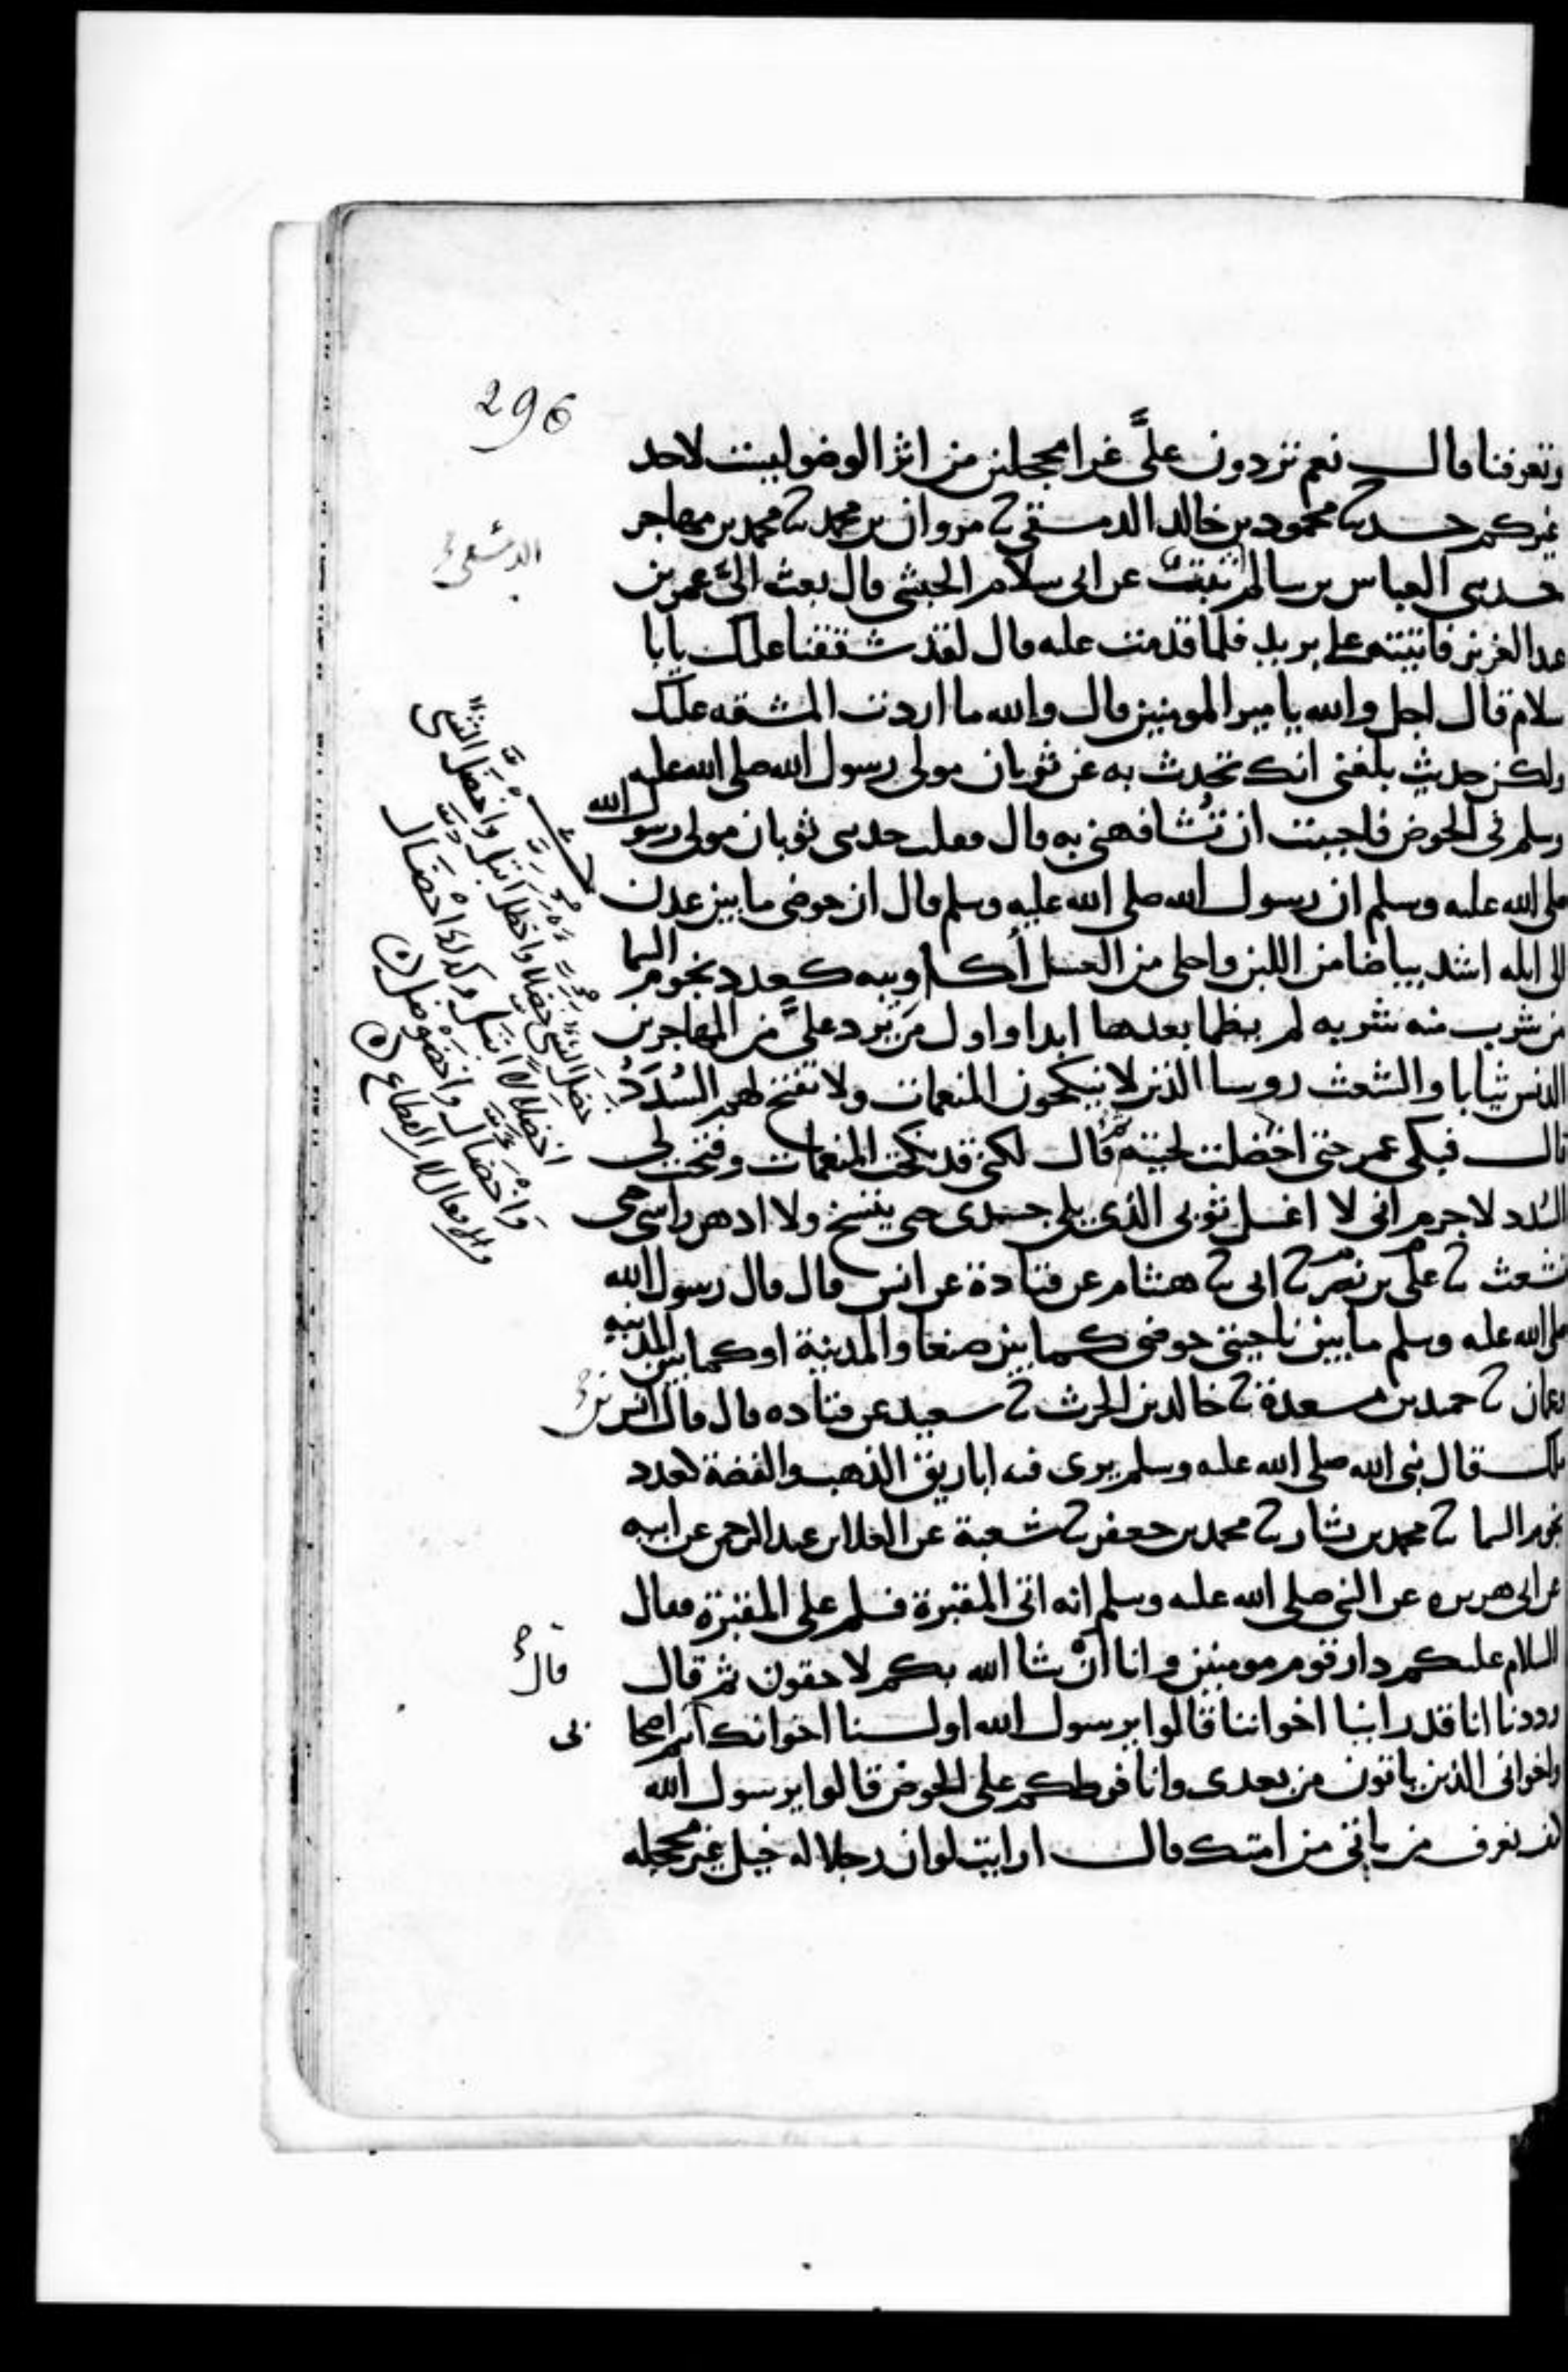 296
وتعرفنا قال نعم تردون علىَّ غرا محجلين من اثر الوضو ليست لاحد
غيركم حدثنا محمود بن خالد الدمشقي ثنا مروان بن محمد ثنا محمد بن مهاجر
حدثني العباس بن سالم عن ابي سلام الحبشي قال بعث الىّ عمر بن
عبد العزيز فاتيته على بريد فلما قدمت عليه قال لقد شققنا عليك يابا
سلام قال اجل والله يا مير المومنين قال والله ما اردت المشقه عليك
ولكن حديث بلغني انك تحدث به عن ثوبان مولى رسول الله صلى الله عليه
وسلم في الحوض فاحببت ان تُشافهني به قال فقلت حدثني ثوبان مولى رسول الله
صلى الله عليه وسلم ان رسول الله صلى الله عليه وسلم قال ان حوضي ما بين عدن
الى ايله اشد بياضا من اللبن واحلى من العسل أكاويبه كعدد نجوم السما
من شرب منه شربه لم يظما بعدها ابدا واول من يرد علىَّ من المهاجرين
الدنس ثيابا والشعث روسا الذين لا ينكحون المنعمات ولا تفتح لهم السُدَدُ
قال فبكى عمر حتى اخضلت لحيته ثم قال لكني قد نكحت المنعمات وفتحت لي
السُدد لا جرم اني لا اغسل ثوبي الذي يلي جسدي حتى يتسخ ولا ادهن راسي حتى
تشعث ثنا علي بن نصر ثنا ابي ثنا هشام عن قتادة عن انس قال قال رسول الله
صلى الله عليه وسلم ما بين ناحيتي حوضي كما بين صنعا والمدينة او كما بين المدينه
وعمان ثنا حميد بن مسعدة ثنا خالد بن الحرث ثنا سعيد عن قتاده قال قال انس بن
ملك قال نبي الله صلى الله عليه وسلم يرى فيه اباريق الذهب والفضة كعدد
نجوم السما ثنا محمد بن بشار ثنا محمد بن جعفر ثنا شعبة عن العلا بن عبد الرحمن عن ابيه
عن ابي هريره عن النبي صلى الله عليه وسلم انه اتى المقبرة فسلم على المقبرة فقال
السلام عليكم دار قوم مومنين وانا انْ شا الله بكم لاحقون ثم قال
وددنا انا قد راينا اخواننا قالوا يرسول الله اولسنا اخوانك انتم اصحا
بي
واخواني الذين ياتون من بعدي وانا فرطكم على الحوض قالوا يرسول الله
كيف تعرف من ياتي من امتك قال ارايت لو ان رجلا له خيل غير محجله
الدمشقي
قال
خضل الشئ خضلا واخظل ابتل واخضل الشئ
اخضلالا ابتل وكذلك اخضال
واخضال واخضوضل